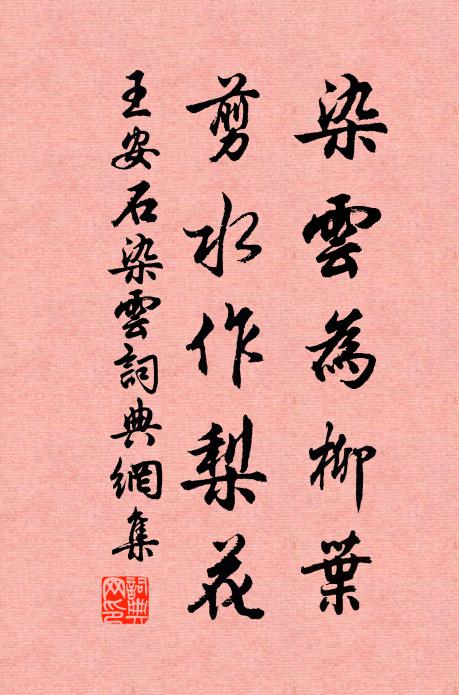 染雲為柳葉
剪水作梨花
王安石染雲詞典網集
詞典網印